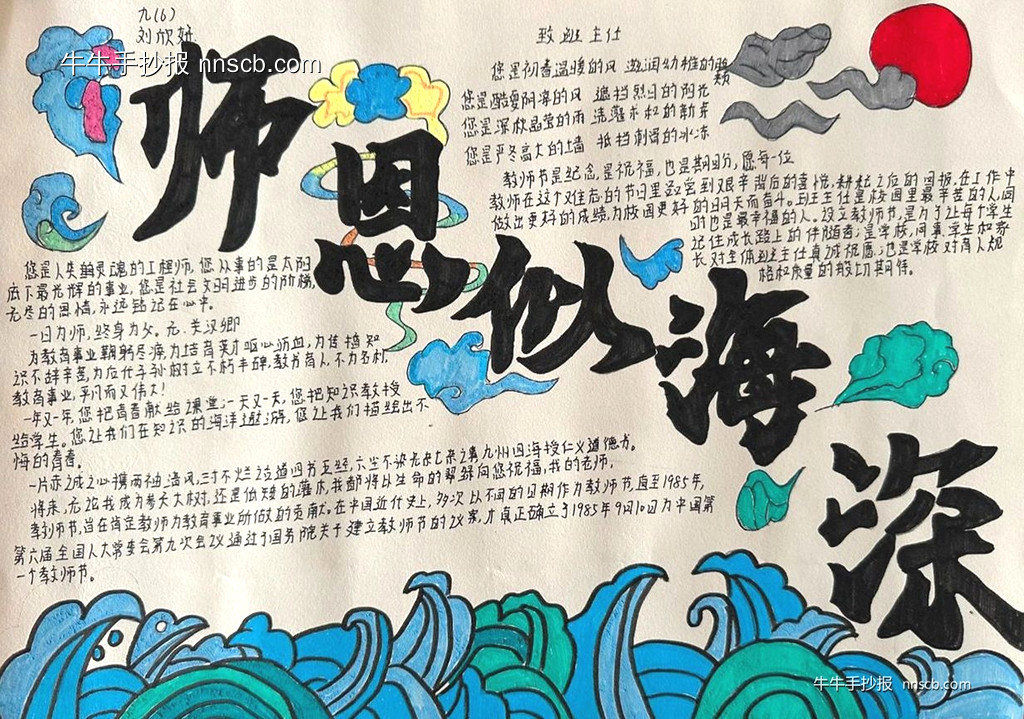 九(6)
刘欣妍
牛牛手抄报 nnscb.com
师恩似海深
致班主任
您是初春温暖的风 滋润幼稚的脸颊
您是酷夏阴凉的风 遮挡烈日的阳光
您是深秋晶莹的雨 洗涤永恒的新奇
您是严冬高大的墙 抵挡刺骨的冰冻
教师节是纪念,是祝福,也是期盼,愿每一位
教师在这个难忘的节日里感受到艰辛背后的喜悦,耕耘之后的回报,在工作中
做出更好的成绩,为校园更好的明天而奋斗。班主任是校园里最辛苦的人,同
时也是最幸福的人。设立教师节,是为了让每个学生
记住成长路上的伴随者;是学校,同事,学生和家
长对全体班主任真诚祝愿;也是学校对育人规
格和质量的殷切期待。
您是人类的灵魂的工程师,您从事的是太阳
底下最光辉的事业,您是社会文明进步的阶梯,
无尽的恩情,永远铭记在心中。
一日为师,终身为父。元.关汉卿
为教育事业鞠躬尽瘁,为培育英才呕心沥血,为传播知
识不辞辛苦,为后代子孙树立不朽丰碑,教书育人,不为名利,
教育事业,平凡而又伟大!
一年又一年,您把青春献给课堂;一天又一天,您把知识教授
给学生。您让我们在知识的海洋遨游,您让我们描绘出不
悔的青春。
一片赤诚之心携两袖清风,三寸不烂之舌通四书五经,六尘不染先史七乘之真九州四海授仁义道德方。
将来,无论我成为参天大树,还是低矮的灌木,我都将以生命的翠绿向您祝福,我的老师,
教师节,旨在肯定教师为教育事业所做的贡献。在中国近代史上,多次以不同的日期作为教师节,直至1985年,
第六届全国人大常委会第九次会议通过了国务院关于建立教师节的议案,才真正确立了1985年9月10日为中国第
一个教师节。
牛牛手抄报 nnscb.com